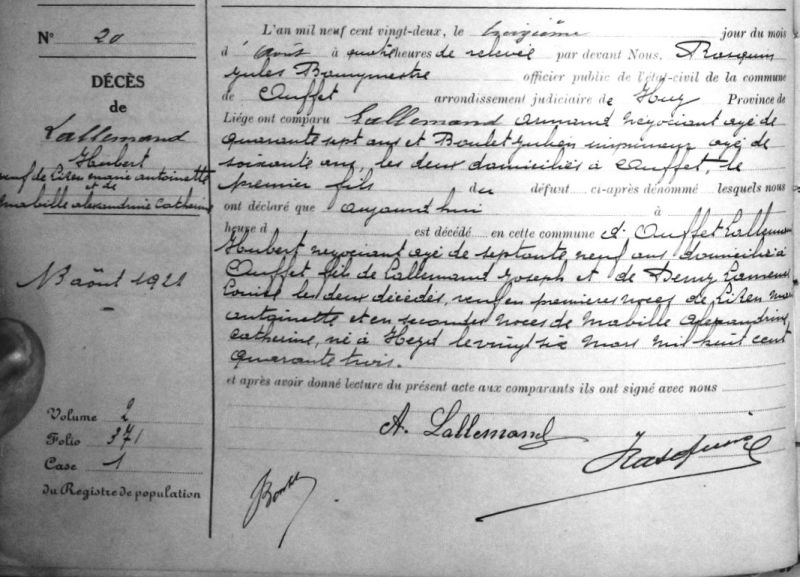 N° 20
DÉCÈS
de
Lallemand
Hubert
veuf de Lizen marie antoinette
et de
Mabille alexandrine Catherine
13 août 1922
Volume 2
Folio 371
Case 1
du Registre de population
L'an mil neuf cent vingt-deux, le treizième jour du mois
d' août à quatre heures de relevée par devant Nous, Rasquin
Jules Bourgmestre officier public de l'état-civil de la commune
de Ouffet arrondissement judiciaire de Huy Province de
Liége ont comparu Lallemand Armand négociant âgé de
quarante sept ans et Boulet Julien imprimeur âgé de
soixante ans, les deux domiciliés à Ouffet, le
premier fils du défunt ci-après dénommé lesquels nous
ont déclaré que aujourd'hui à
heure d est décédé en cette commune d'Ouffet Lallemand
Hubert négociant âgé de septante neuf ans domicilié à
Ouffet fils de Lallemand Joseph et de
Louise les deux décédés, veuf en premières noces de Lizen marie
antoinette et en secondes noces de Mabille Alexandrine
Catherine, né à le vingt six mars mil huit cent
quarante trois.
et après avoir donné lecture du présent acte aux comparants ils ont signé avec nous
A. Lallemand
Rasquin
Boulet